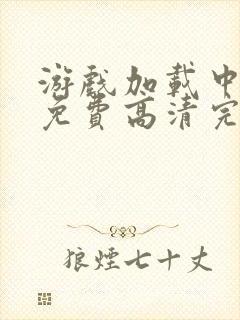 游戲加載中
免費高清完
狼煙七十丈